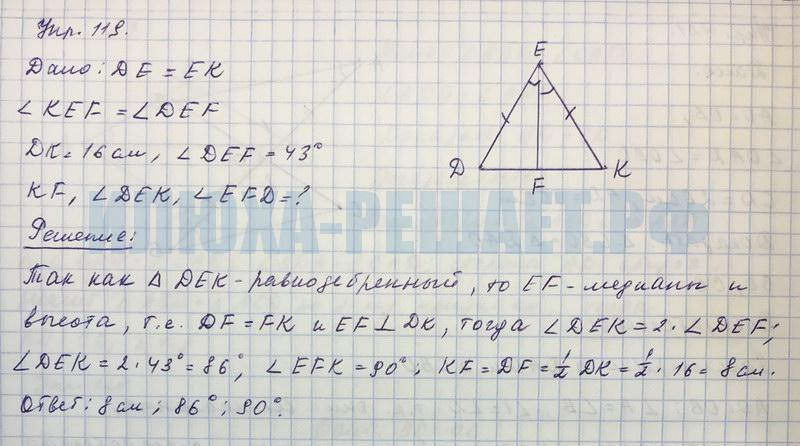 Упр. 119.
Дано: DE = EK
∠KEF = ∠DEF
DK = 16 см, ∠DEF = 43°
KF, ∠DEK, ∠EFD = ?
Решение:
Так как Δ DEK - равнобедренный, то EF - медиана и
высота, т.е. DF = FK и EF ⊥ DK, тогда ∠DEK = 2 · ∠DEF;
∠DEK = 2 · 43° = 86°, ∠EFK = 90°; KF = DF = 1/2 DK = 1/2 · 16 = 8 см.
Ответ: 8 см; 86°; 90°.
E
D
F
K
ИЛЮХА-РЕШАЕТ.РФ